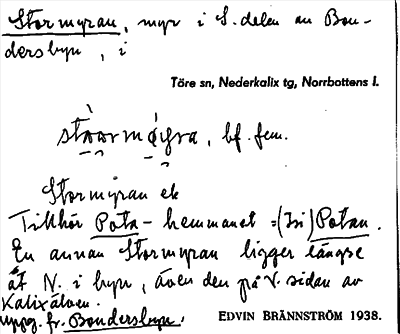 Stormyran, myr i S. delen av Bon-
dersbyn, i
Töre sn, Nederkalix tg, Norrbottens l.
bf. fem.
Stormyran ek
Tillhör Pota-hemmanet =(Isi)Potan.
En annan Stormyran ligger längre
åt N. i byn, även den på V. sidan av
Kalixälven.
Uppg. fr. Bondersbyn.
EDVIN BRÄNNSTRÖM 1938.